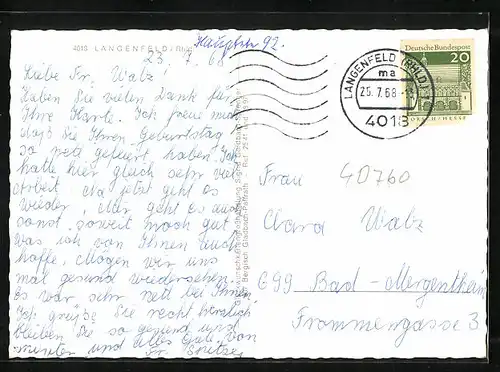 4018 LANGENFELD/Rhld.
Hauptstr 92.
23. 7. 68
Liebe Fr. Walz!
Haben Sie vielen Dank für
Ihre Karte. Ich freue mich
daß Sie Ihren Geburtstag
so nett gefeiert haben. Ich
hatte hier gleich sehr viel
Arbeit. Na jetzt geht es
wieder. Mir geht es auch
sonst soweit noch gut
was ich von Ihnen auch
hoffe. Mögen wir uns
mal gesund wiedersehen.
Es war sehr nett bei Ihnen.
Ich grüße Sie recht herzlich
bleiben Sie so gesund und
munter und alles Gute von
Fr.
LANGENFELD (RHLD)
ma
25.7.68
4018
Deutsche Bundespost
20
LORSCH/HESSEN
Frau 40760
Clara Walz
699 Bad-Mergentheim
Frommengasse 3